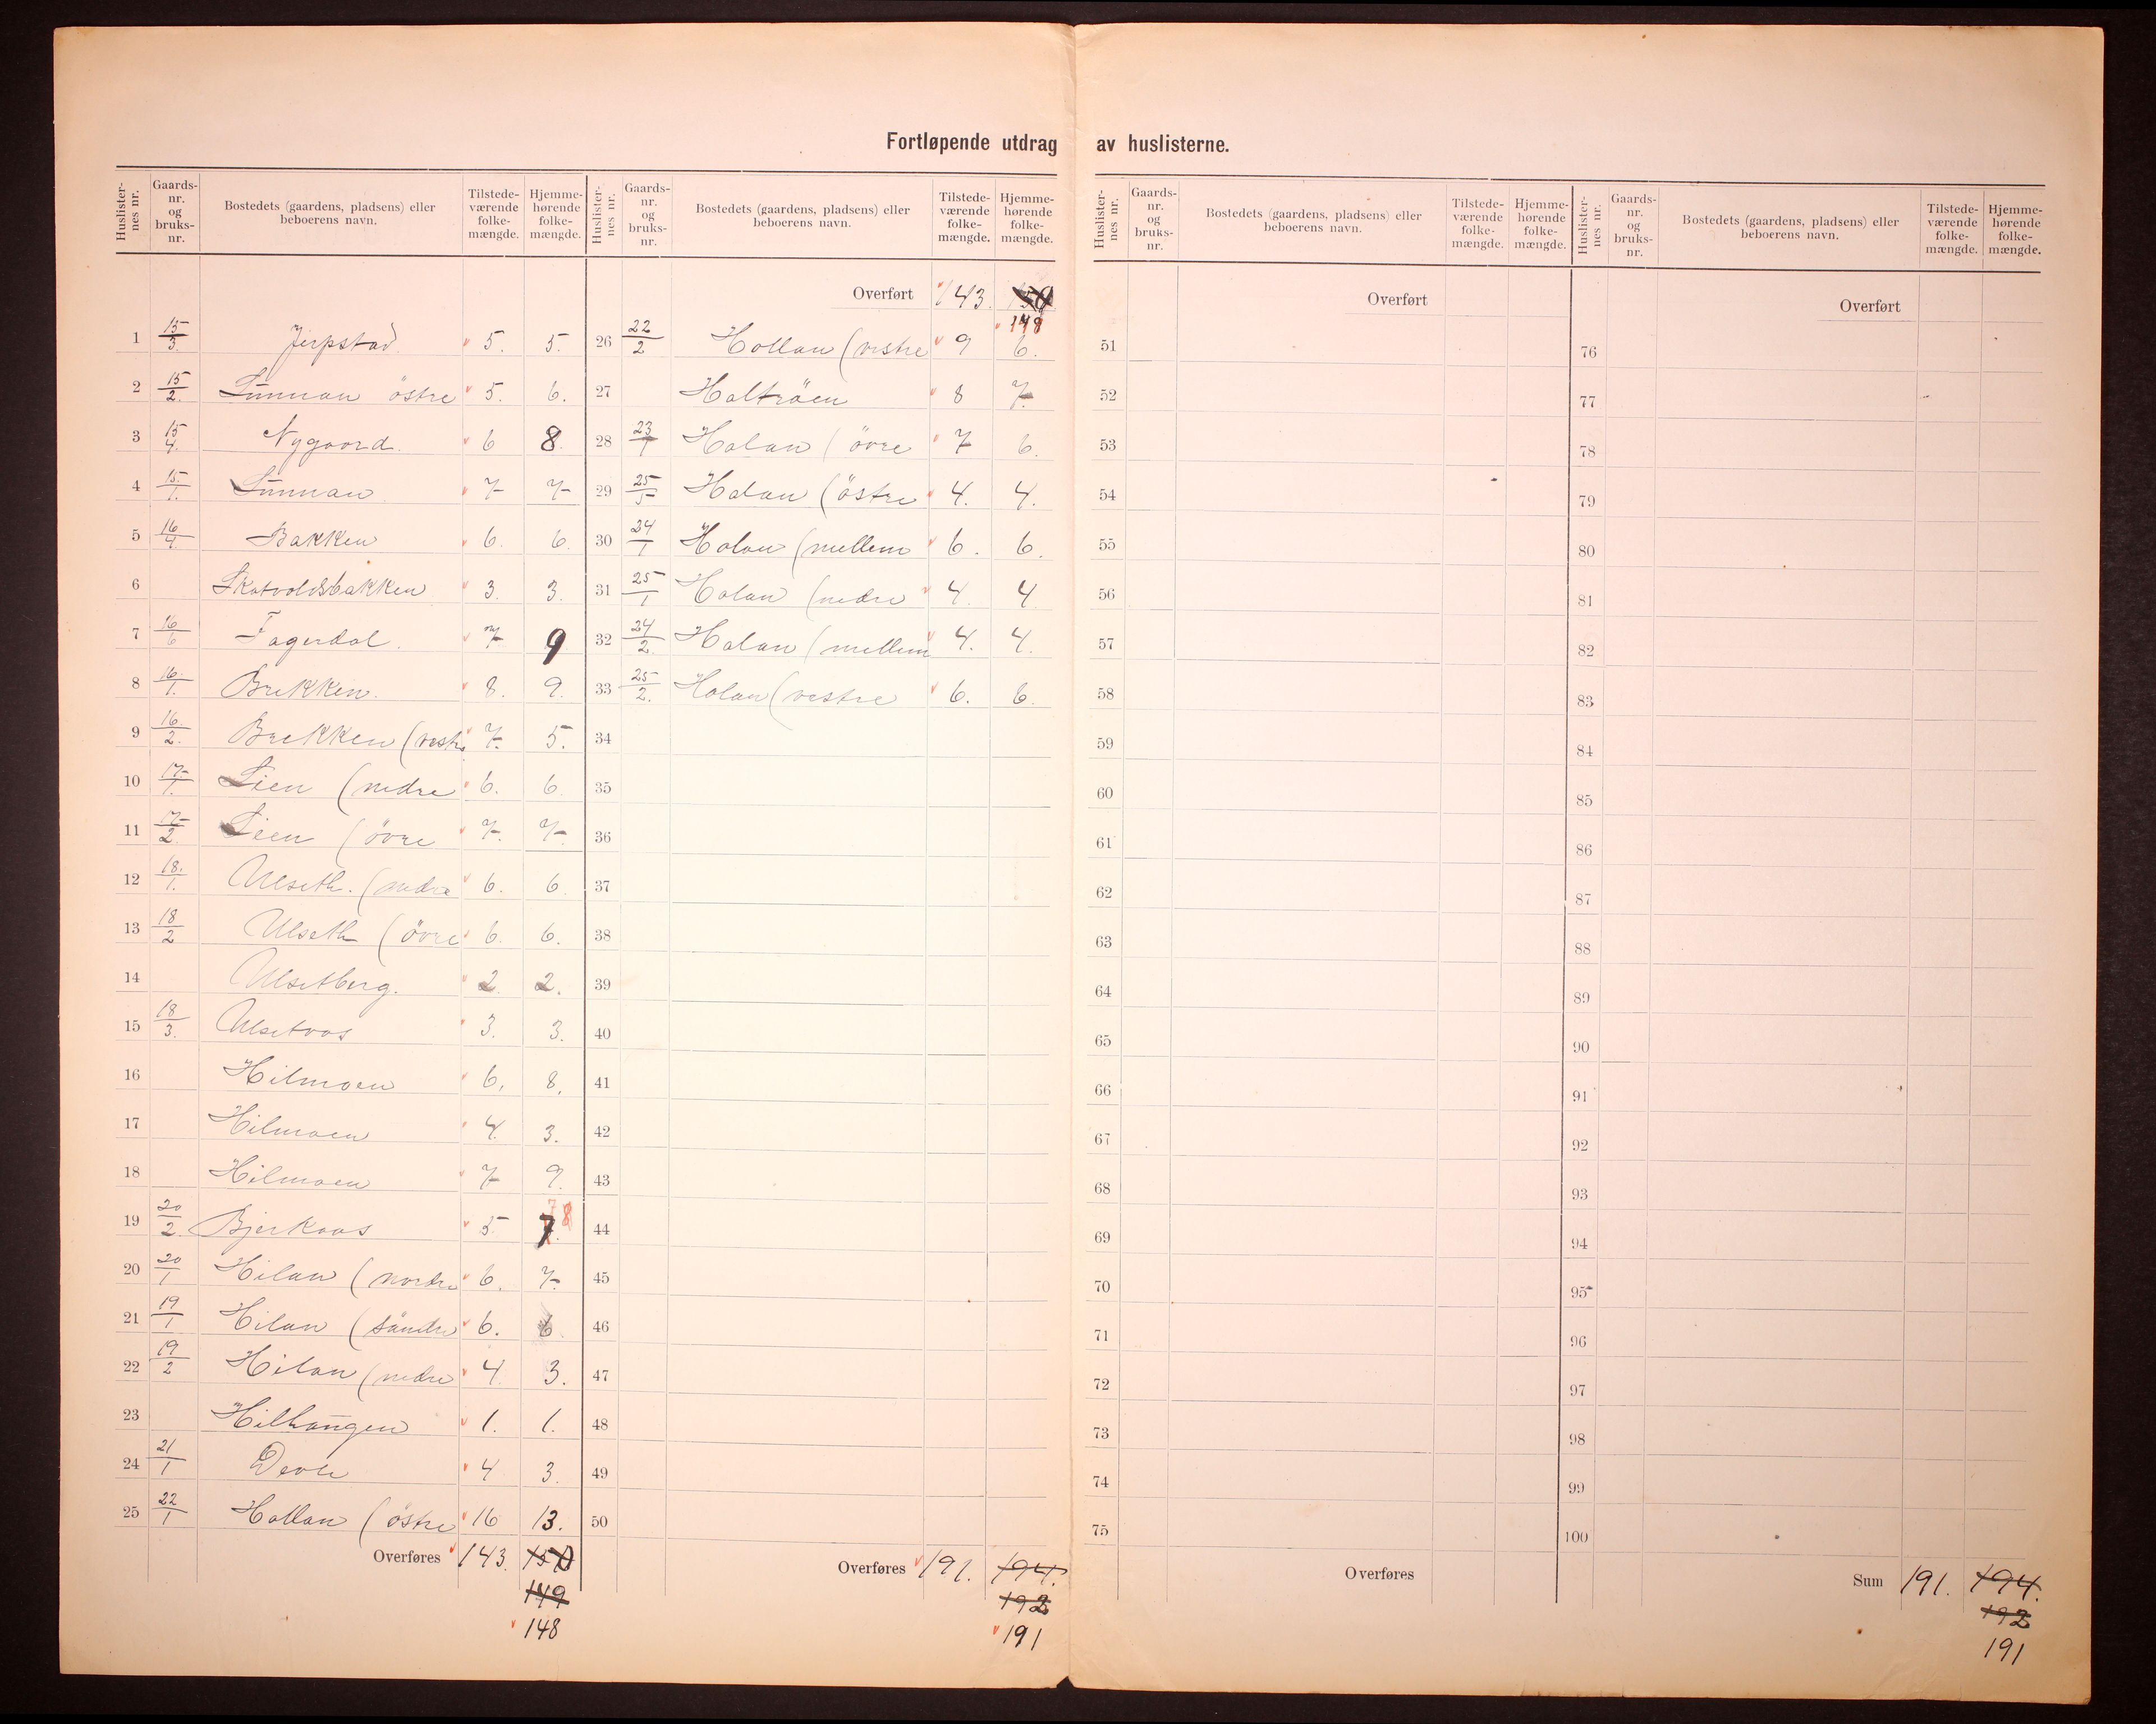 Fortløpende utdrag av huslisterne.
Huslister-nes nr. | Gaards-nr. og bruks-nr. | Bostedets (gaardens, pladsens) eller beboerens navn. | Tilstede-værende folke-mængde. | Hjemme-hørende folke-mængde.
1 15/3. Jerpstad. 5. 5.
2 15/2. Sunnan östre 5. 6.
3 15/4. Nygaard. 6 8.
4 15/1. Sunnan. 7 7
5 16/4. Bakken 6. 6.
6 Skatvoldsbakken 3. 3.
7 16/6 Fagerdal. 7 9
8 16/1. Brekken. 8. 9.
9 16/2. Brekken (vestre 7. 5.
10 17/1. Lien (nedre 6. 6
11 17/2. Lien (övre 7. 7
12 18/1. Ulseth. (nedre 6. 6
13 18/2 Ulseth (övre 6. 6.
14 Ulsetberg. 2. 2.
15 18/3. Ulsetvos 3. 3.
16 Hilmoen 6, 8,
17 Hilmoen 4. 3.
18 Hilmoen 7 9.
19 20/2. Bjerkaas 5. 7. 8
20 20/1 Hilan (nordre 6. 7.
21 19/1 Hilan (söndre 6. 6
22 19/2 Hilan (nedre 4. 3.
23 Hilhaugen 1. 1.
24 21/1 Devle 4 3.
25 22/1 Hallan (östre 16 13.
Overføres 143. 150
149
148
Huslister-nes nr. | Gaards-nr. og bruks-nr. | Bostedets (gaardens, pladsens) eller beboerens navn. | Tilstede-værende folke-mængde. | Hjemme-hørende folke-mængde.
Overført 143. 150
148
26 22/2 Hollan (vestre 9 6.
27 Haltröen 8 7.
28 23/1 Holan (övre 7 6.
29 25/5 Holan (östre 4. 4.
30 24/1 Holan (mellem 6. 6.
31 25/1 Holan (nedre 4. 4
32 24/2. Holan (mellem 4. 4.
33 25/2. Holan (vestre 6. 6.
34
35
36
37
38
39
40
41
42
43
44
45
46
47
48
49
50
Overføres 191. 194.
192
191
Huslister-nes nr. | Gaards-nr. og bruks-nr. | Bostedets (gaardens, pladsens) eller beboerens navn. | Tilstede-værende folke-mængde. | Hjemme-hørende folke-mængde.
Overført
51
52
53
54
55
56
57
58
59
60
61
62
63
64
65
66
67
68
69
70
71
72
73
74
75
Overføres
Huslister-nes nr. | Gaards-nr. og bruks-nr. | Bostedets (gaardens, pladsens) eller beboerens navn. | Tilstede-værende folke-mængde. | Hjemme-hørende folke-mængde.
Overført
76
77
78
79
80
81
82
83
84
85
86
87
88
89
90
91
92
93
94
95
96
97
98
99
100
Sum 191. 194.
192
191